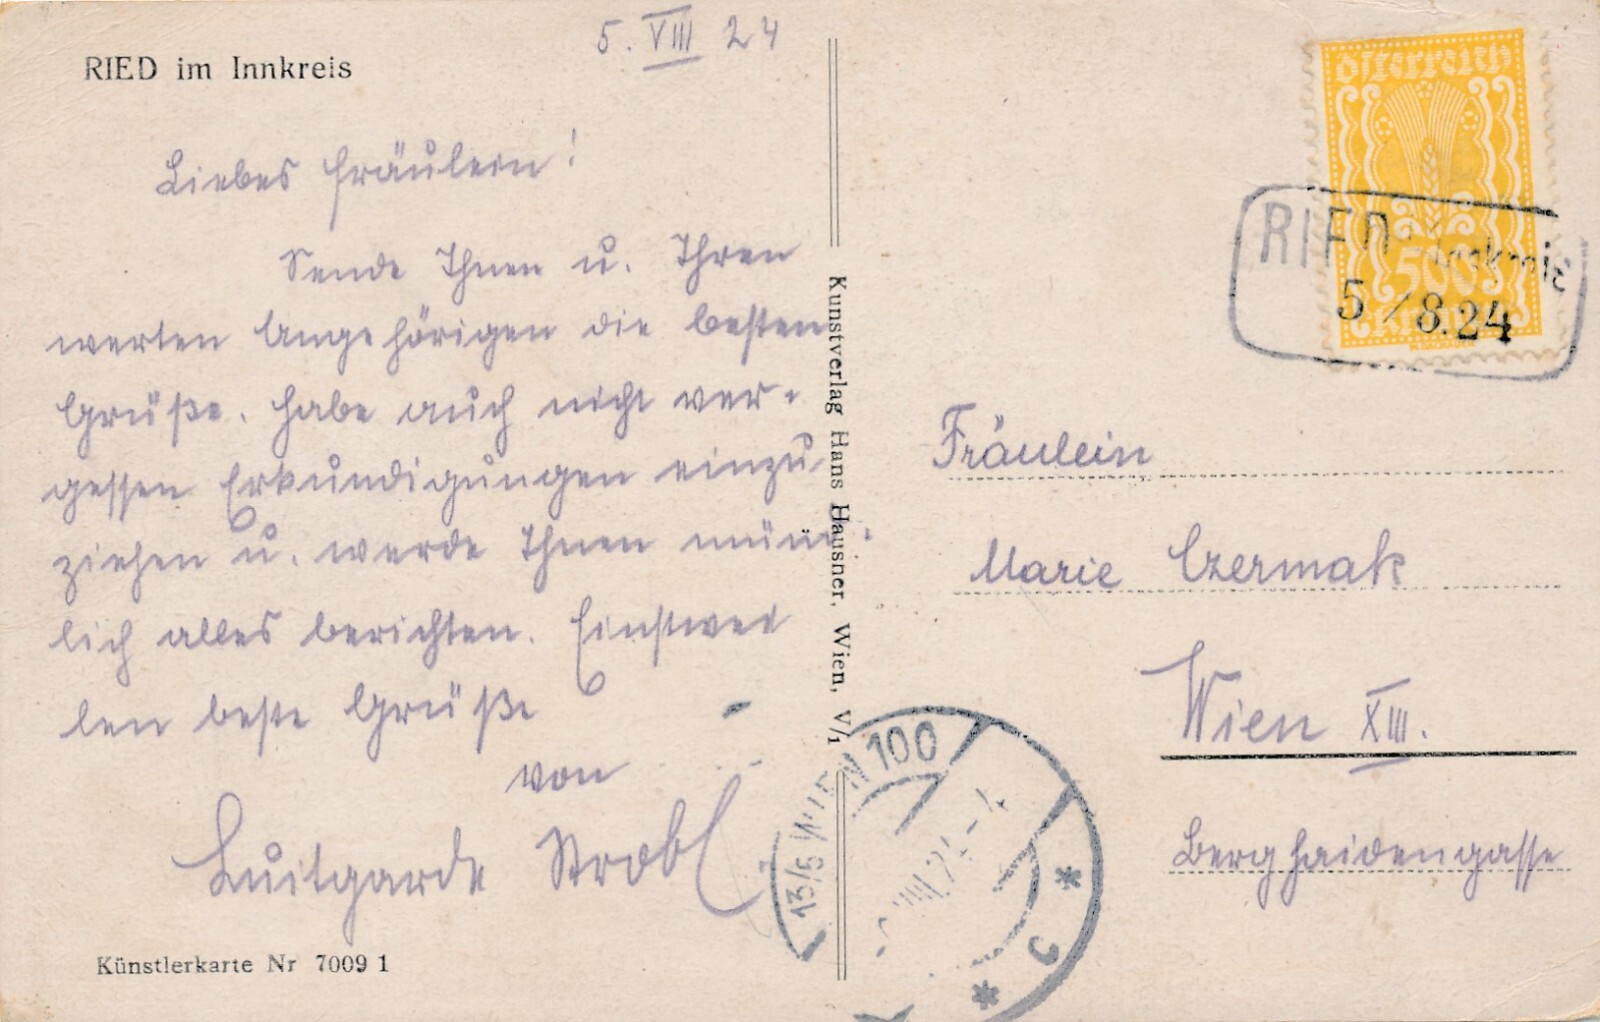 5. VIII 24
RIED im Innkreis
Liebes Fräulein!
Sende Ihnen u. Ihren
werten Angehörigen die besten
Grüße. Habe auch nicht ver-
gessen Erkundigungen einzu-
ziehen u. werde Ihnen münd-
lich alles berichten. Einstwei
len beste Grüße
von
Luitgarde Strobl
Künstlerkarte Nr 7009 1
Kunstverlag Hans Hausner, Wien, V/1
Österreich
500
Kronen
RIED Innkreis
5/8.24
Fräulein
Marie Czermak
Wien XIII.
Berghaidengasse
13/5 WIEN 100
VIII.24-4
* C *